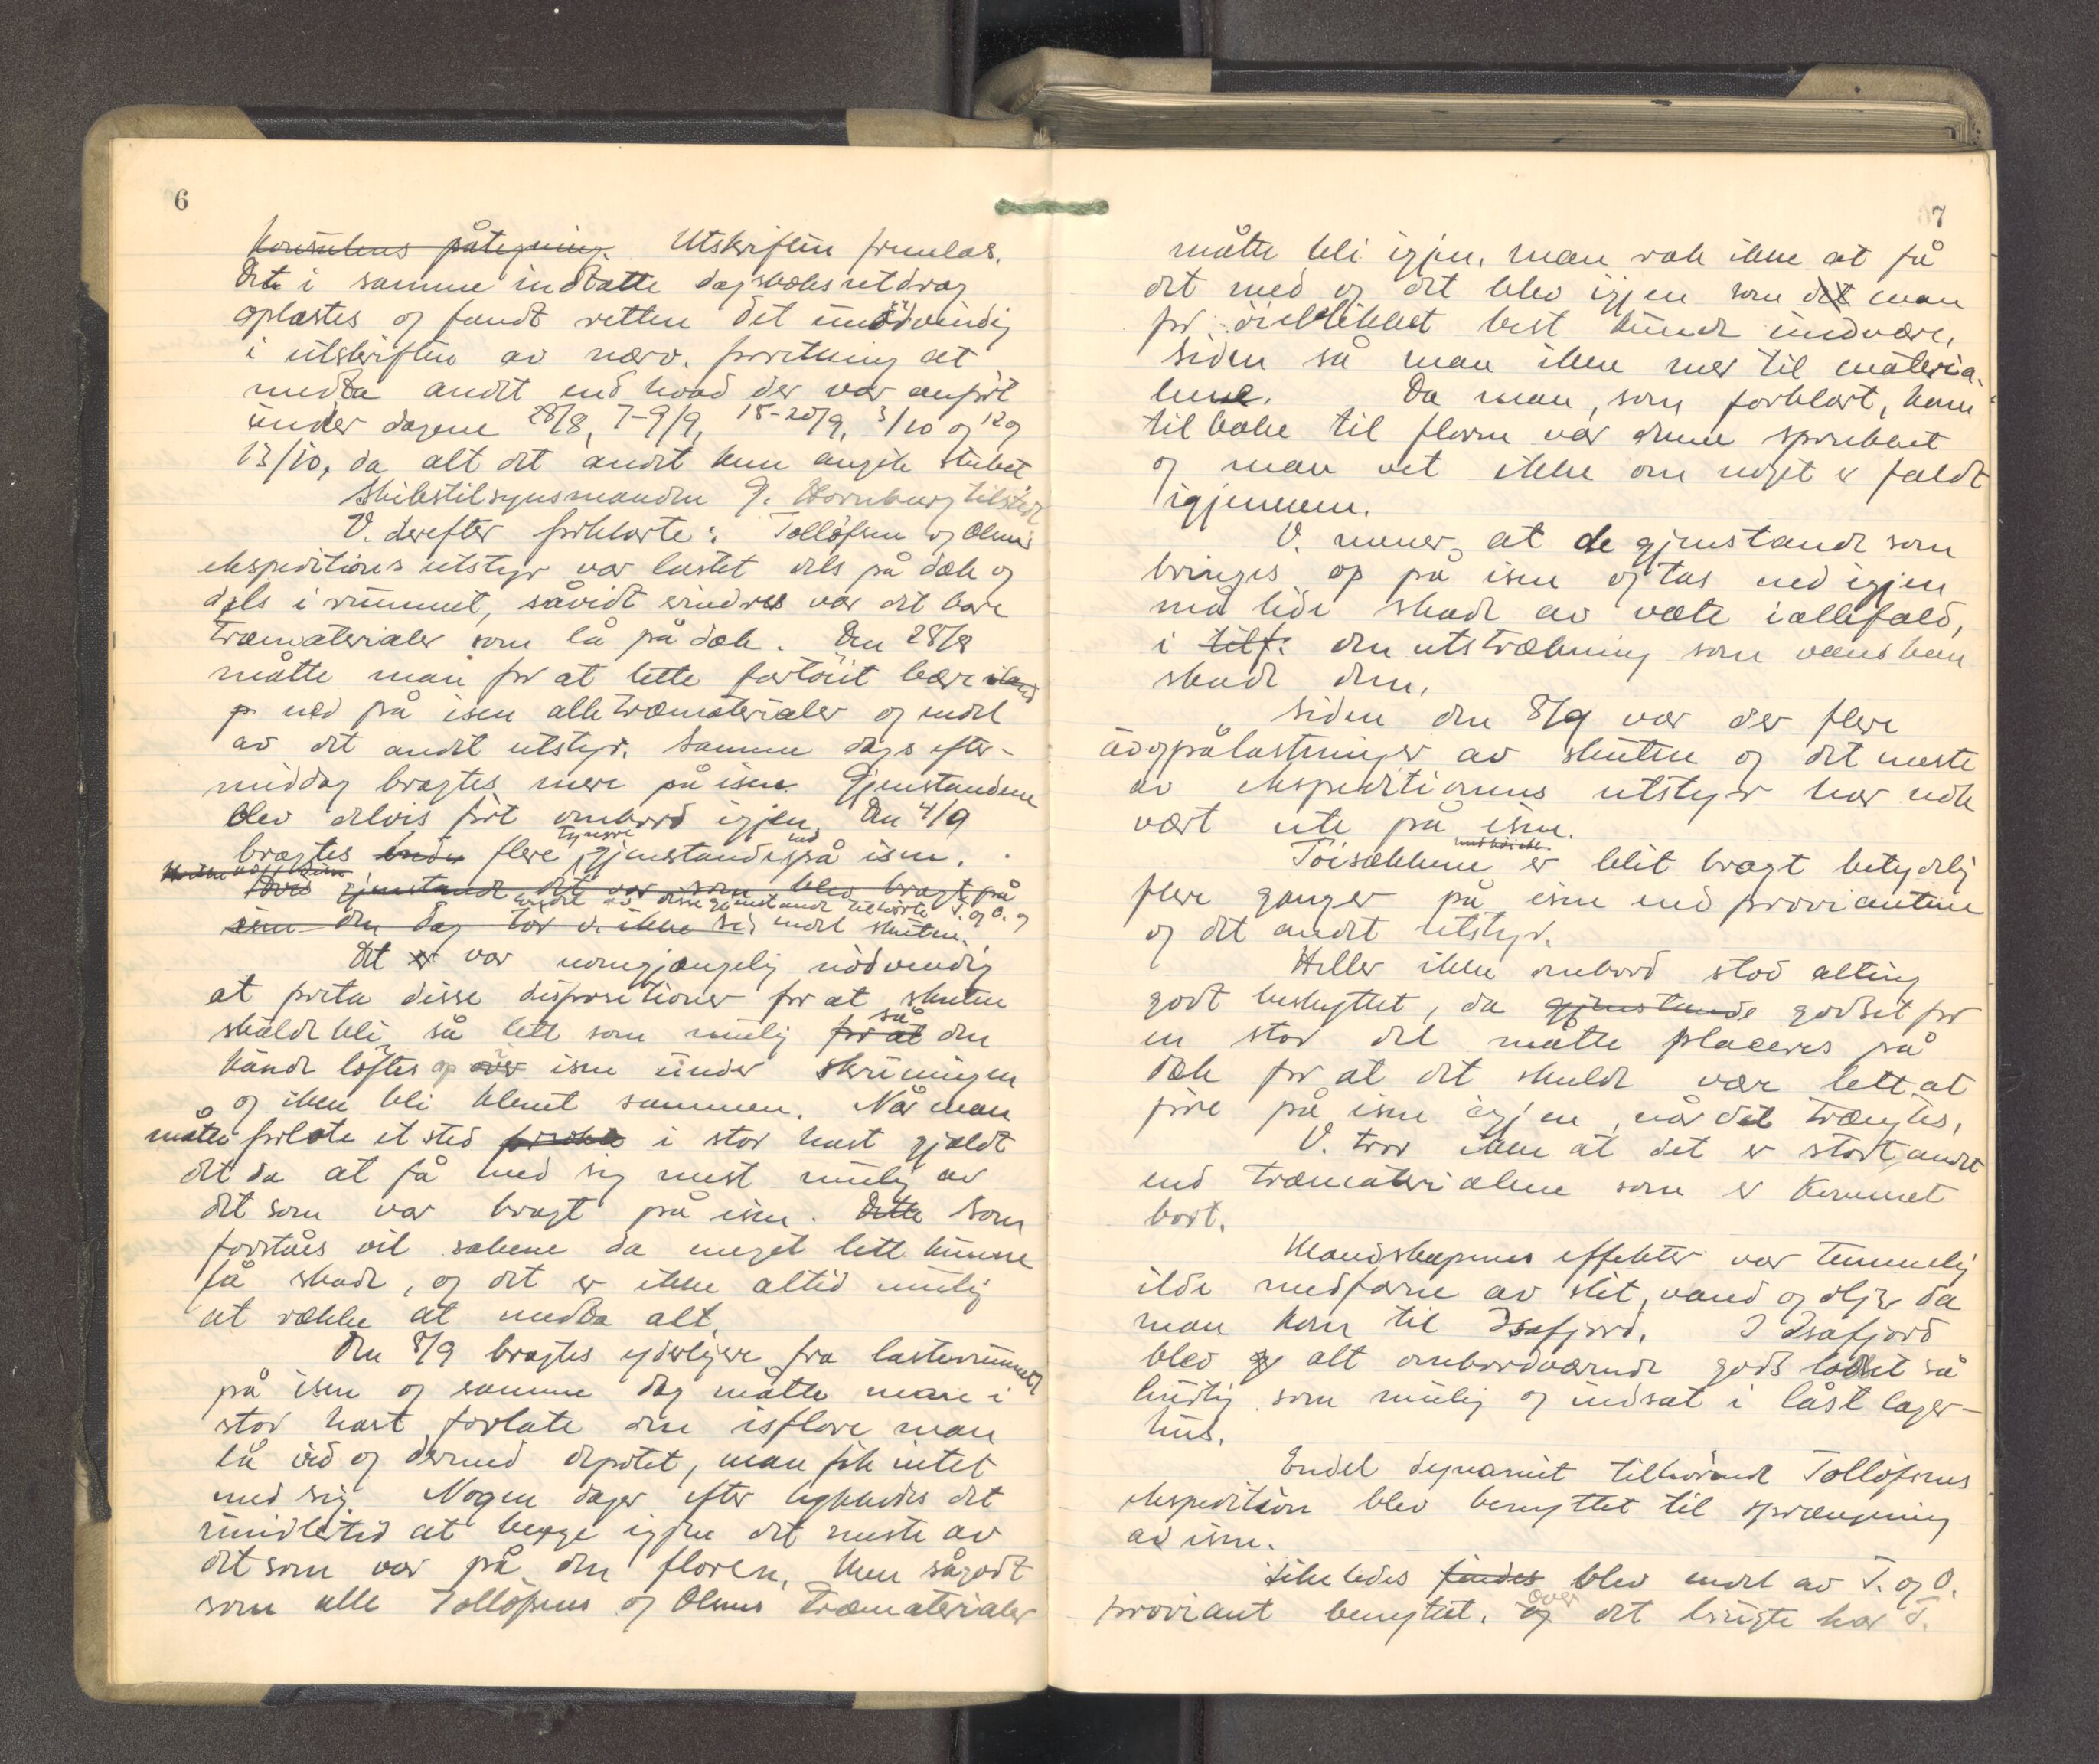 6
konsulens påtegning. Utskriften fremlas.
Det i samme indtatte dagboksutdrag
oplæstes og fandt retten det unødvendig
i utskriften av nærv. forretning at
medta andet end hvad der var anført
under dagene 28/8, 7-9/9, 18-20/9, 3/10 og 12 og
13/10, da alt det andet kun angik skibet
Skibstilsynsmanden G. Hornburg tilstede
V. derefter forklarte: Tollöfsen og Olsens
ekspeditions utstyr var lastet dels på dæk og
dels i rummet, såvidt erindres var det bare
træmaterialer som lå på dæk. Den 28/8
måtte man for at lette fartöiet bære
ned på isen alle træmaterialer og endel
av det andet utstyr. Samme dags efter-
middag bragtes mere på isen. Gjenstandene
blev delvis fört ombord igjen. Den 4/9
bragtes endu flere tyngre gjenstande ned på isen.
hvis gjenstande det var som blev bragt på
endel av disse gjenstande tilhörte T. og O. og
isen den dag tör v. ikke si, endel skuten.
Det er var uomgjængelig nödvendig
at foreta disse dispositioner for at skuten
skulde bli så lett som mulig for at så den
kunde löftes op over isen under skruingen
og ikke bli klemt sammen. Når man
måtte forlate et sted i stor hast gjaldt
det da at få med sig mest mulig av
det som var bragt på isen. Dette Som
forståes vil sakene da meget lett kunne
få skade, og det er ikke altid mulig
at række at medta alt.
Den 8/9 bragtes yderligere fra lasterummet
på isen og samme dag måtte man i
stor hast forlate den isflore man
lå ved og dermed depotet, man fik intet
med sig. Nogen dager efter lykkedes det
imidlertid at berge igjen det meste av
det som var på den floren. Men sågodt
som alle Tollöfsens og Olsens træmaterialer
7
måtte bli igjen, man rak ikke at få
det med og det blev igjen som det man
for öieblikket best kunde undvære,
siden så man ikke mer til materia-
lene. Da man, som forklart, kom
tilbake til floren var denne sprukket
og man vet ikke om noget er faldt
igjennem.
V. mener, at de gjenstande som
bringes op på isen og tas ned igjen
må lide skade av væte iallefald,
i tilf: den utstrækning som vand kan
skade dem.
Siden den 8/9 var der flere
av og pålastninger av skuten og det meste
av ekspeditionens utstyr har nok
vært ute på isen.
Töisækkene er blit bragt betydelig
flere ganger på isen end provianten
og det andet utstyr.
Heller ikke ombord stod alting
godt beskyttet, da gjenstande godset for
en stor del måtte placeres på
dæk for at det skulde være lett at
före på isen igjen, når det trængtes.
V. tror ikke at det er stort andet
end træmaterialene som er kommet
bort.
Mandskapenes effekter var temmelig
ilde medfarne av slit, vand og olje da
man kom til Isafjord. I Isafjord
blev alt ombordværende gods losset så
hurtig som mulig og indsat i låst lager-
hus.
Endel dynamit tilhörende Tollöfsens
ekspedition blev benyttet til sprængning
av isen.
Likeledes findes blev endel av T. og O.
proviant benyttet. og over det brugte har T.